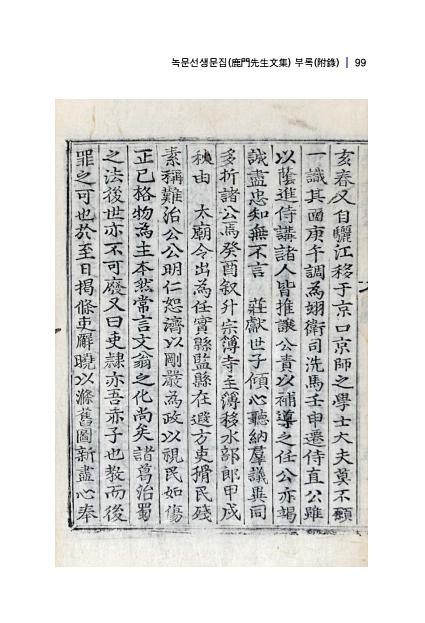 녹문선생문집(鹿門先生文集) 부록(附錄) | 99
亥春又自驪江移于京口京師之學士大夫莫不願
一識其面庚午調爲翊衛司洗馬壬申遷侍直公雖
以蔭進侍講諸人皆推讓公責以補導之任公亦竭
誠盡忠知無不言 莊獻世子傾心聽納群議異同
多折諸公焉癸酉叙升宗簿寺主簿移水部郎甲戌
秋由 太廟令出爲任實縣監縣在遐方吏猾民殘
素稱難治公公明仁恕濟以剛嚴爲政以視民如傷
正已格物爲主本然常言文翁之化尚矣諸葛治蜀
之法後世亦不可廢又曰吏隷亦吾赤子也敎而後
罪之可也於至日揭條吏廨曉以滌舊圖新盡心奉